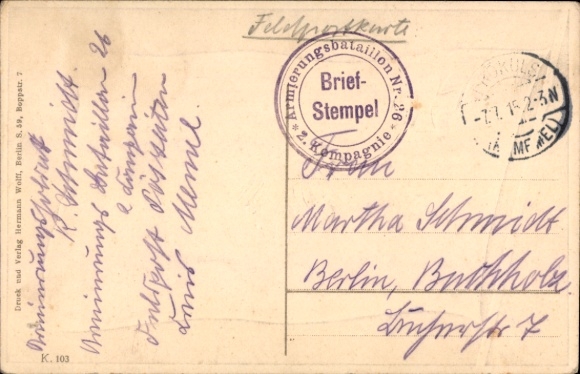 Feldpostkarte
Armierungsbataillon Nr. 26
Brief-
Stempel
* 2. Kompagnie *
-7.7.15.2-3N
MEMEL)
Frau
Martha Schmidt
Berlin, Buchholz
7
R. Schmidt.
Armierungs Bataillon 26
2 Kompanie
Feldpost
Kreis Memel.
Druck und Verlag Hermann Wolff, Berlin S. 59, Boppstr. 7
K. 103